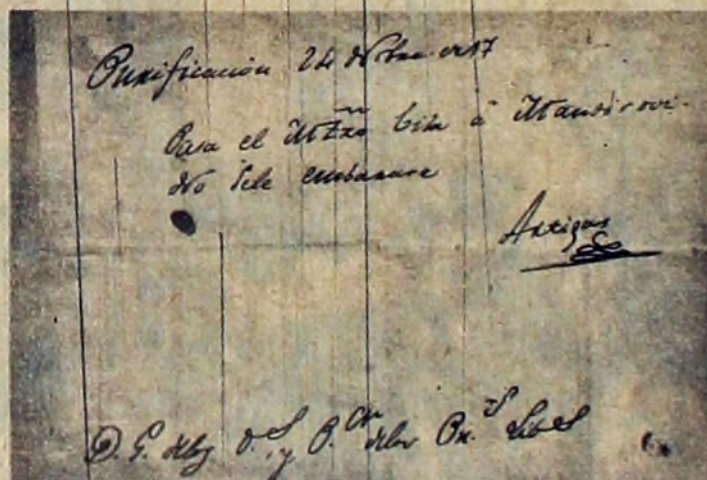 Purificacion 24 Nbre. 1817
Pasa el Mtro Bila á Mandisovi.
No sele embarace
Artigas
D. G. delos O.s y P.or delos Ps.s Libs